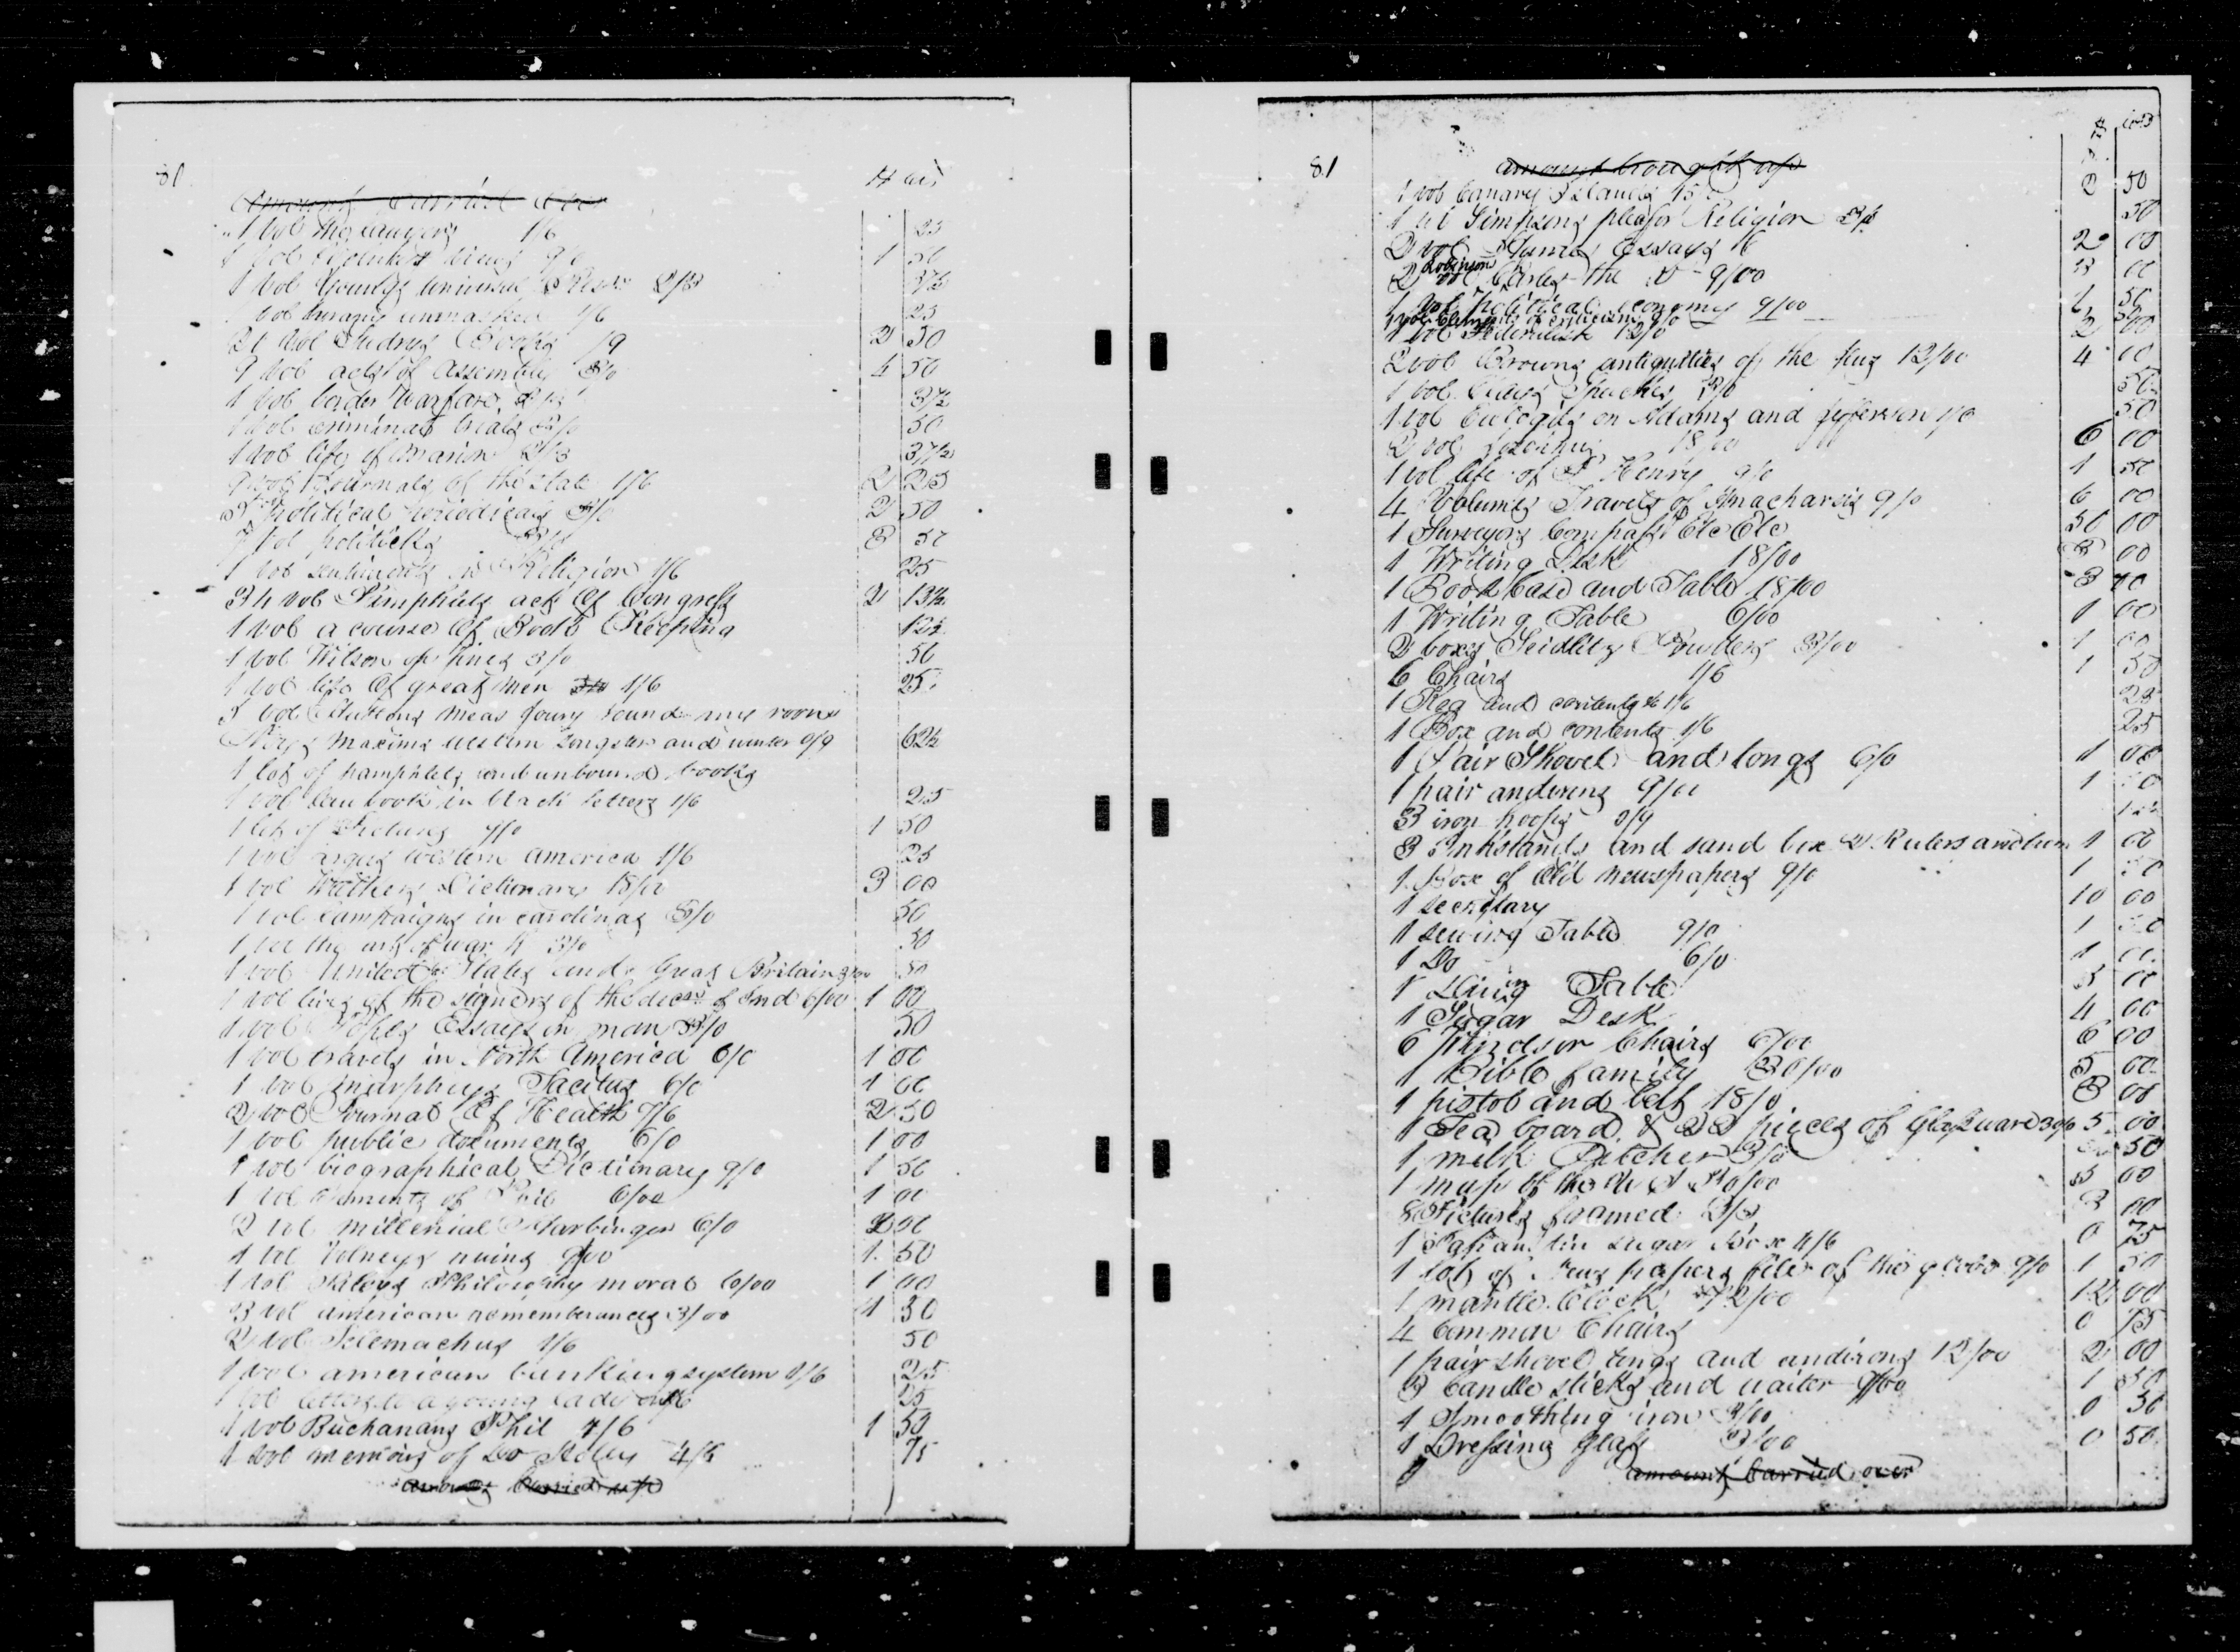 81
# cts
Amount Carried Over
1 vol the lawyers 1/6 25
1 vol views 9/0 1 50
1 vol Youngs universal 2/3 37½
vol unmasked 1/6 25
21 vol Sundry Books /9 2 50
9 vol acts of Assembly 3/0 4 50
1 vol border Warfare 2/3 37½
1 vol criminal trials 3/0 50
1 vol life of Marion 2/3 37½
9 vol Journals of the State 1/6 2 25
5 political periodicals 3/0 2 50
7 vol politicks 3/0 3 50
1 vol sentiments in Religion 1/6 25
34 vol Pamphlets acts of Congress 2 13½
1 vol a course of Book Keeping 12½
1 vol Wilson on fines 3/0 50
1 vol life of great men 1/6 25
5 vol Huttons Meas Jours round my room
Maxims western Songster and 0/9 62½
1 lot of pamphlets and unbound books
1 vol Law book in black letters 1/6 25
1 lot of Pictures 9/0 1 50
1 vol western America 1/6 25
1 vol Walkers Dictionary 18/00 3 00
1 vol campaigns in carolinas 3/0 50
1 vol the art of war 3/0 50
1 vol United States and Great Britain 3/00 50
1 vol lives of the signers of the decn of Ind 6/00 1 00
1 vol Popes Essays on man 3/0 50
1 vol travels in North America 6/0 1 00
1 vol Murpheys Tacitus 6/0 1 00
2 vol Journal of Health 7/6 2 50
1 vol public documents 6/0 1 00
1 vol biographical Dictionary 9/0 1 50
1 vol elements of 6/00 1 00
2 vol millenial Harbinger 6/0 2 00
1 vol Volneys ruins 9/00 1 50
1 vol Paleys Philosophy moral 6/00 1 00
3 vol american remembrances 3/00 1 50
2 vol Telemachus 1/6 50
1 vol american banking system 1/6 25
1 vol letters to a young lady 1/6 25
1 vol Buchanans Phil 7/6 1 50
1 vol memoirs of Do Holey 4/6 75
amount Carried up
81
$ cts
amount brought up
1 vol Canary Islands 15 2 50
1 vol Simpsons plea for Religion 3/0 50
2 vol Humes Essays 6 2 00
2 vol Robinson Charles the V 9/00 3 00
1 vol political economy 9/00 1 50
1 vol elements of criticism 3/0 50
1 vol Federalist 12/0 2 00
2 vol Browns antiquities of the Jews 12/00 4 00
1 vol Clays Speeches 3/0 50
1 vol Eulogies on Adams and Jefferson 3/0 50
2 vol 18/00 6 00
1 vol life of P Henry 9/0 1 50
4 Volumes Travels of Anacharsis 9/0 6 00
1 Surveyors Compass Etc Etc 50 00
1 Writing Desk 18/00 3 00
1 Book Case and Table 18/00 3 00
1 Writing Table 6/00 1 00
2 boxes Seidlitz Powders 3/00 1 00
6 Chairs 1/6 1 50
1 Keg and contents 1/6 25
1 Box and contents 1/6 25
1 Pair Shovel and tongs 6/0 1 00
1 pair andirons 9/00 1 50
3 iron hoops 0/9 12½
3 Inkstands and sand box 2 Rulers and 1 00
1 Box of Old Newspapers 9/0 1 50
1 secretary 10 00
1 sewing Table 9/0 1 50
1 Do 6/0 1 00
1 Dining Table 5 00
1 Sugar Desk 4 00
6 Windsor Chairs 6/00 6 00
1 Bible family 30/00 5 00
1 pistol and belt 18/0 3 00
1 Tea board & 22 pieces of Glassware 30/0 5 00
1 milk Pitcher 3/0 50
1 map of the U S 30/00 5 00
8 Pictures framed 2/3 3 00
1 Japan tin sugar Box 4/6 0 75
1 lot of News papers file of the globe 9/0 1 50
1 mantle Clock 72/00 12 00
4 Common Chairs 0 75
1 pair shovel tongs and andirons 12/00 2 00
3 Candle sticks and waiter 9/00 1 50
1 Smoothing iron 3/00 0 50
1 Dressing Glass 3/00 0 50
amount Carried over